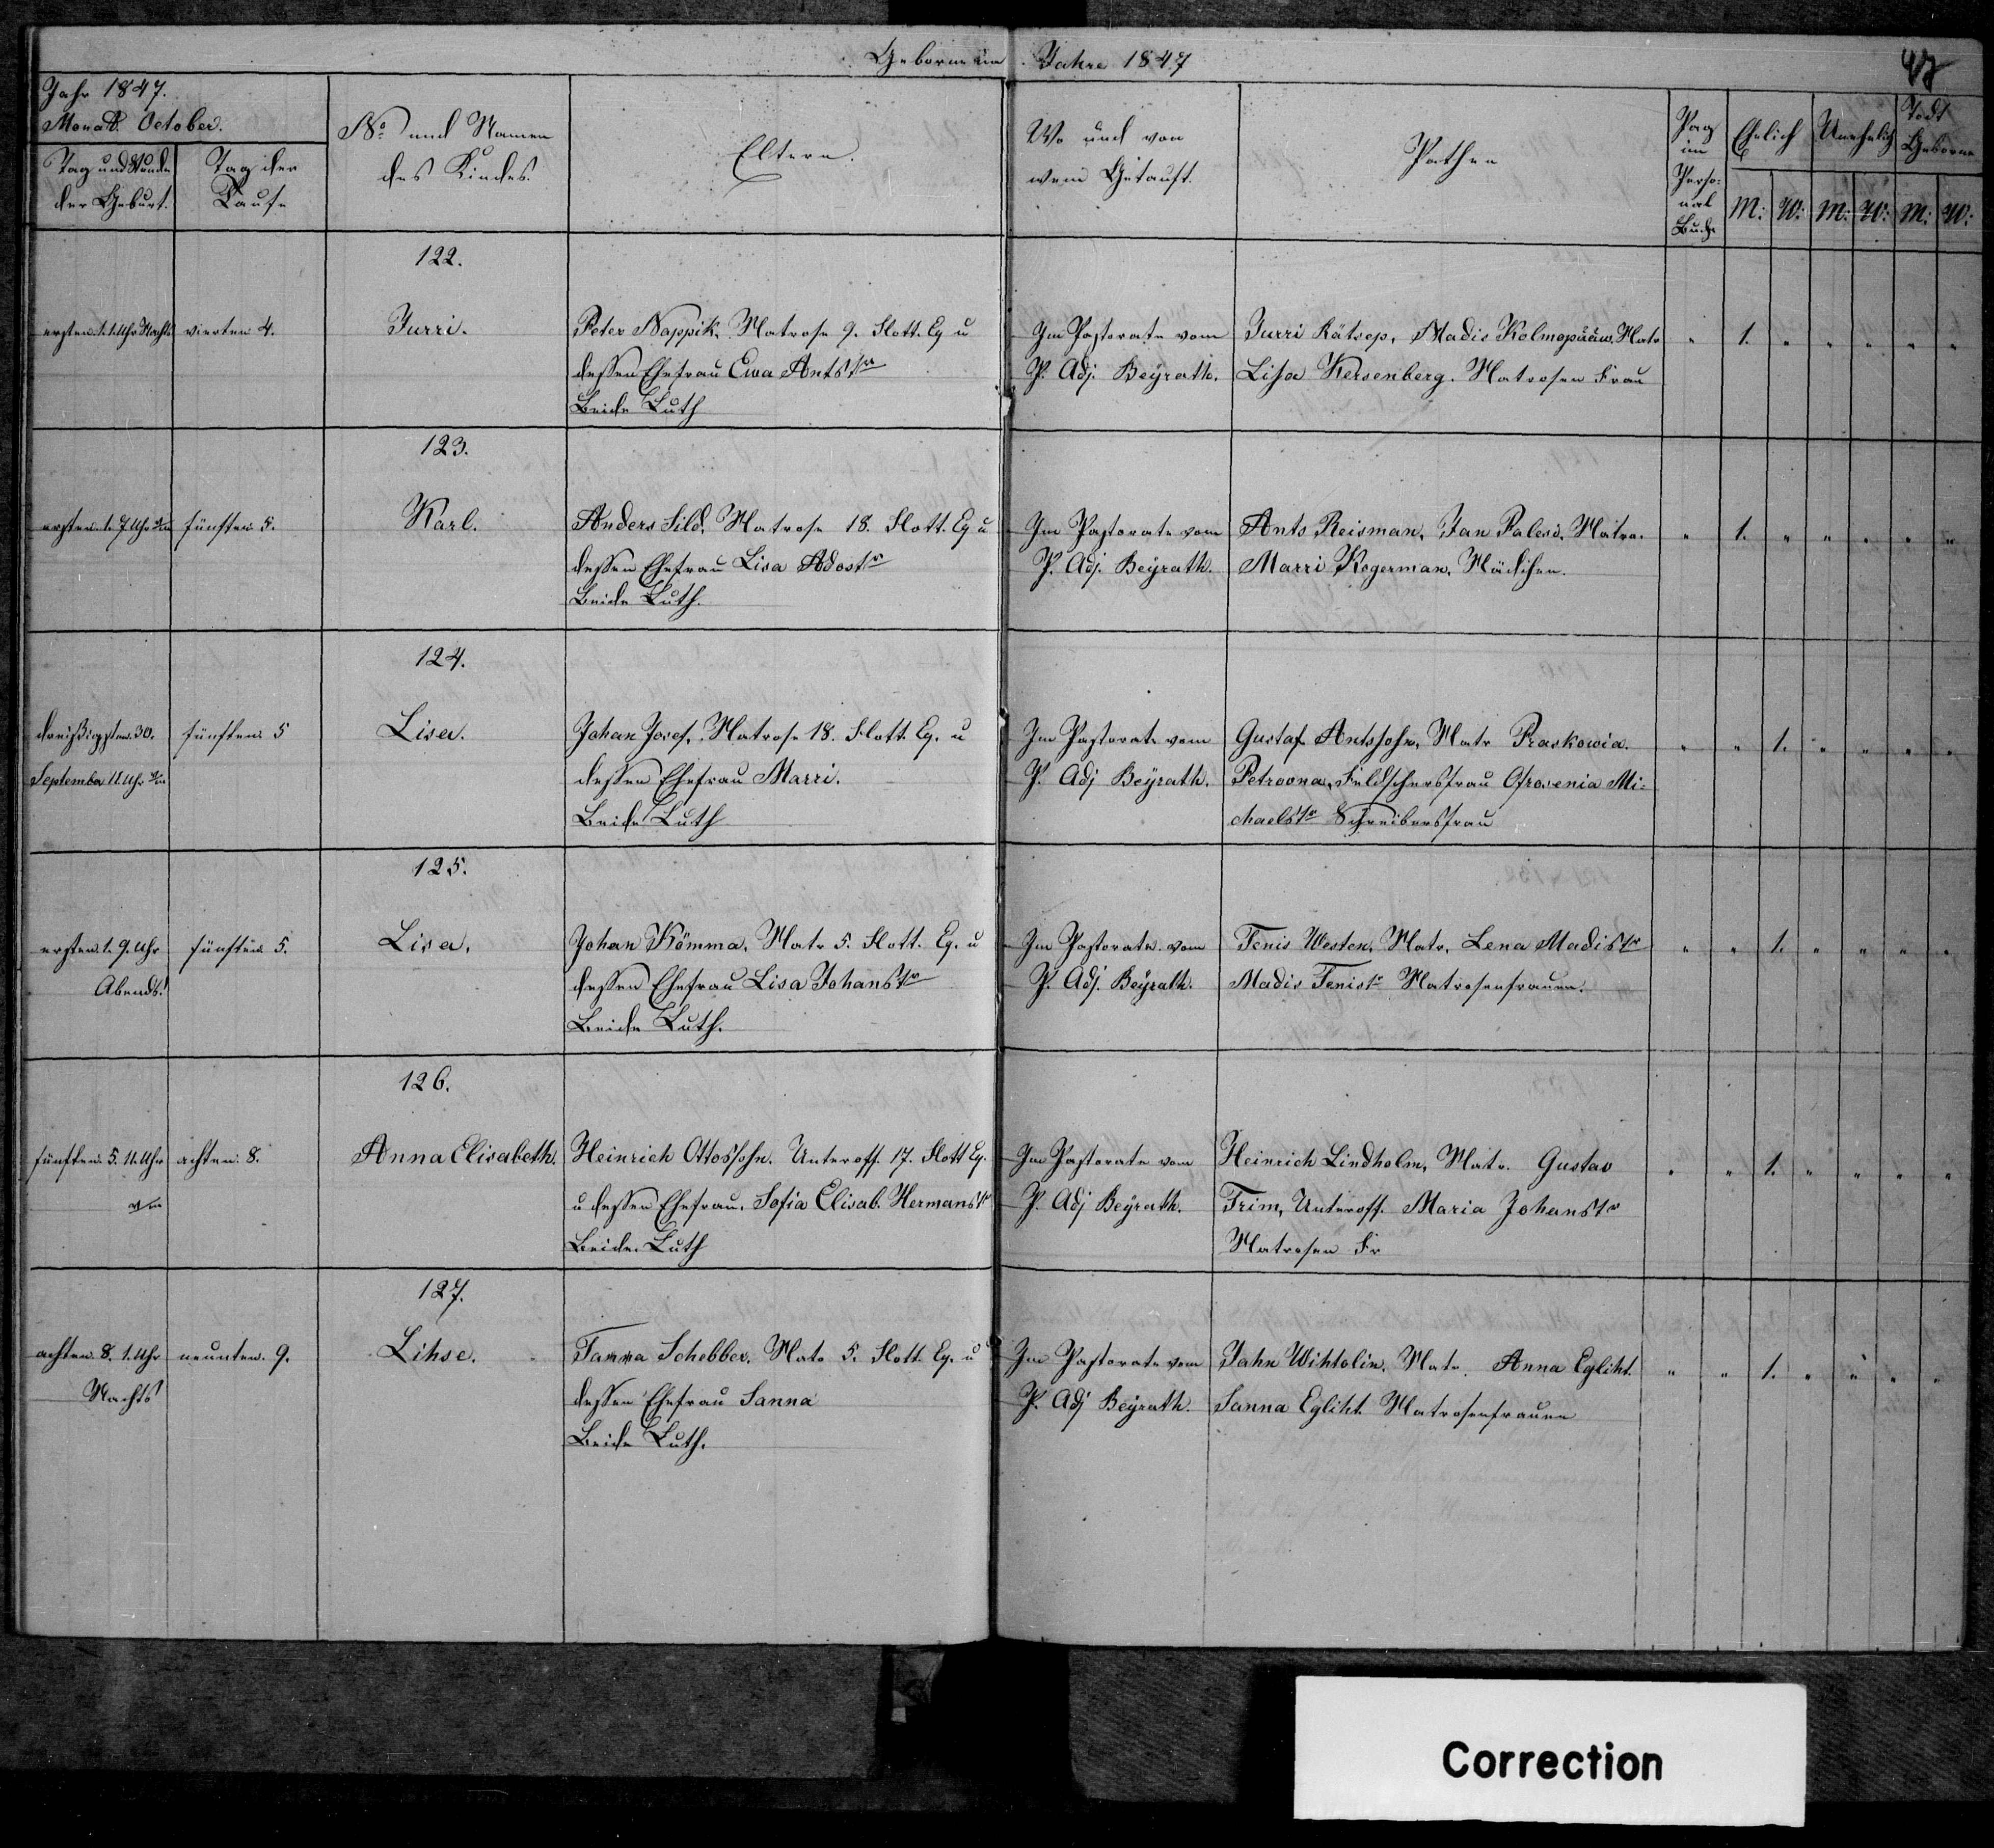 Geborne im Jahre 1847
47
Jahr 1847.
Monat. October.
Tag und Stunde der Geburt.
Tag der Taufe
No und Namen des Kindes.
Eltern.
Wo und von wem Getauft.
Pathen
Pag im Personal Buch
Ehelich
Unehelich
Todt Geborne
M: W: M: W: M: W:
122.
ersten. 1. 1. Uhr Nachts
vierten 4.
Jurri.
Peter Nappik, Matrose 9. Flott. Eq u
dessen Ehefrau Ewa Antstr
Beide Luth
Im Pastorate vom
P. Adj. Beyrath.
Jurri Rätsep, Madis Kolmopuuw, Matr
Lisa Kersenberg. Matrosen Frau
" 1. " " " " "
123.
ersten. 1. 7 Uhr
fünften 5.
Karl.
Anders Sild, Matrose 18. Flott. Eq u
dessen Ehefrau Lisa Adostr
Beide Luth.
Im Pastorate vom
P. Adj. Beyrath.
Ants Reisman, Jan Palero, Matro.
Marri Kogerman, Mädchen.
" 1. " " " " "
124.
dreißigsten. 30.
September 11. Uhr
fünften 5
Lisa.
Johan Josef, Matrose 18. Flott. Eq. u
dessen Ehefrau Marri.
Beide Luth
Im Pastorate vom
P. Adj Beyrath.
Gustaf Antssohn, Matr Praskowia.
Petrowna, Feldschersfrau Ofrosenia Mi-
chaelstr Schreibersfrau
" " 1. " " " "
125.
ersten. 1. 9. Uhr
Abends.
fünften 5.
Lisa.
Johan Kömma, Matr 5. Flott. Eq. u
dessen Ehefrau Lisa Johanstr
Beide Luth.
Im Pastorate vom
P. Adj. Beyrath.
Tenis Westen, Matr. Lena Madistr
Madis Tenistr Matrosenfrauen.
" " 1. " " " "
126.
fünften 5. 11. Uhr
achten 8.
Anna Elisabeth.
Heinrich Ottossohn. Unteroff. 17. Flott Eq.
u dessen Ehefrau, Sofia Elisab. Hermanstr
Beide Luth
Im Pastorate vom
P. Adj Beyrath.
Heinrich Lindholm, Matr. Gustav
Trim, Unteroff. Maria Johanstr
Matrosen Fr
" " 1. " " " "
127.
achten 8. 1. Uhr
Nachts
neunten. 9.
Lihse.
Tanna Schebber, Matr 5. Flott Eq. u
dessen Ehefrau Sanna
Beide Luth.
Im Pastorate vom
P. Adj Beyrath.
Jahn Wihtolin, Matr. Anna Egliht.
Sanna Egliht. Matrosenfrauen
" " 1. " " " "
Correction